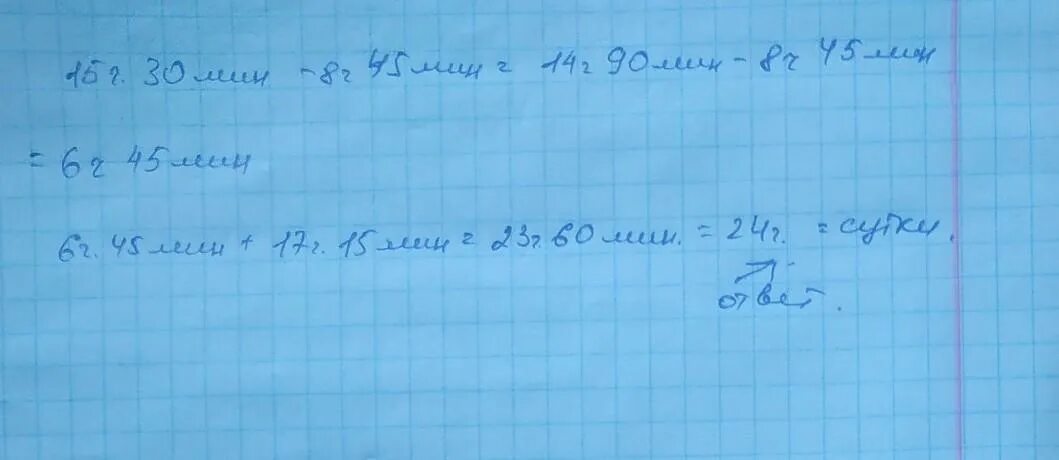 15ч. 30 мин - 8ч 45 мин = 14ч 90 мин - 8ч 45 мин
= 6ч 45 мин
6ч. 45 мин + 17ч. 15 мин = 23ч. 60 мин. = 24ч. = сутки.
ответ.